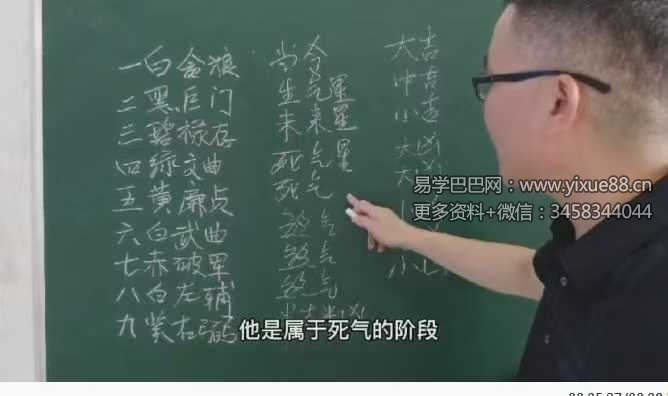 一白贪狼
二黑巨门
三碧禄存
四绿文曲
五黄廉贞
六白武曲
七赤破军
八白左辅
九紫右弼
当令
生气星
未来星
死气星
死气
煞气
煞气
煞气
大吉
中吉
小吉
大凶
大
易学巴巴网：www.yixue88.cn
更多资料+微信：3458344044
他是属于死气的阶段